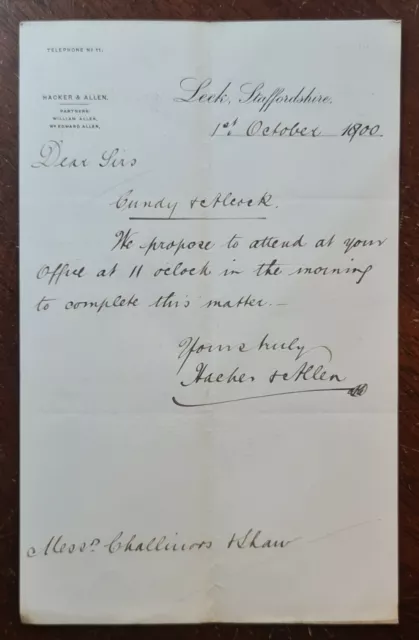 TELEPHONE No 11.
HACKER & ALLEN.
PARTNERS:
WILLIAM ALLEN,
Wm EDWARD ALLEN.
Leek, Staffordshire,
1st October 1900
Dear Sirs
Cundy & Alcock.
We propose to attend at your
Office at 11 oclock in the morning
to complete this matter.—
Yours truly
Hacker & Allen
Messrs Challinors & Shaw